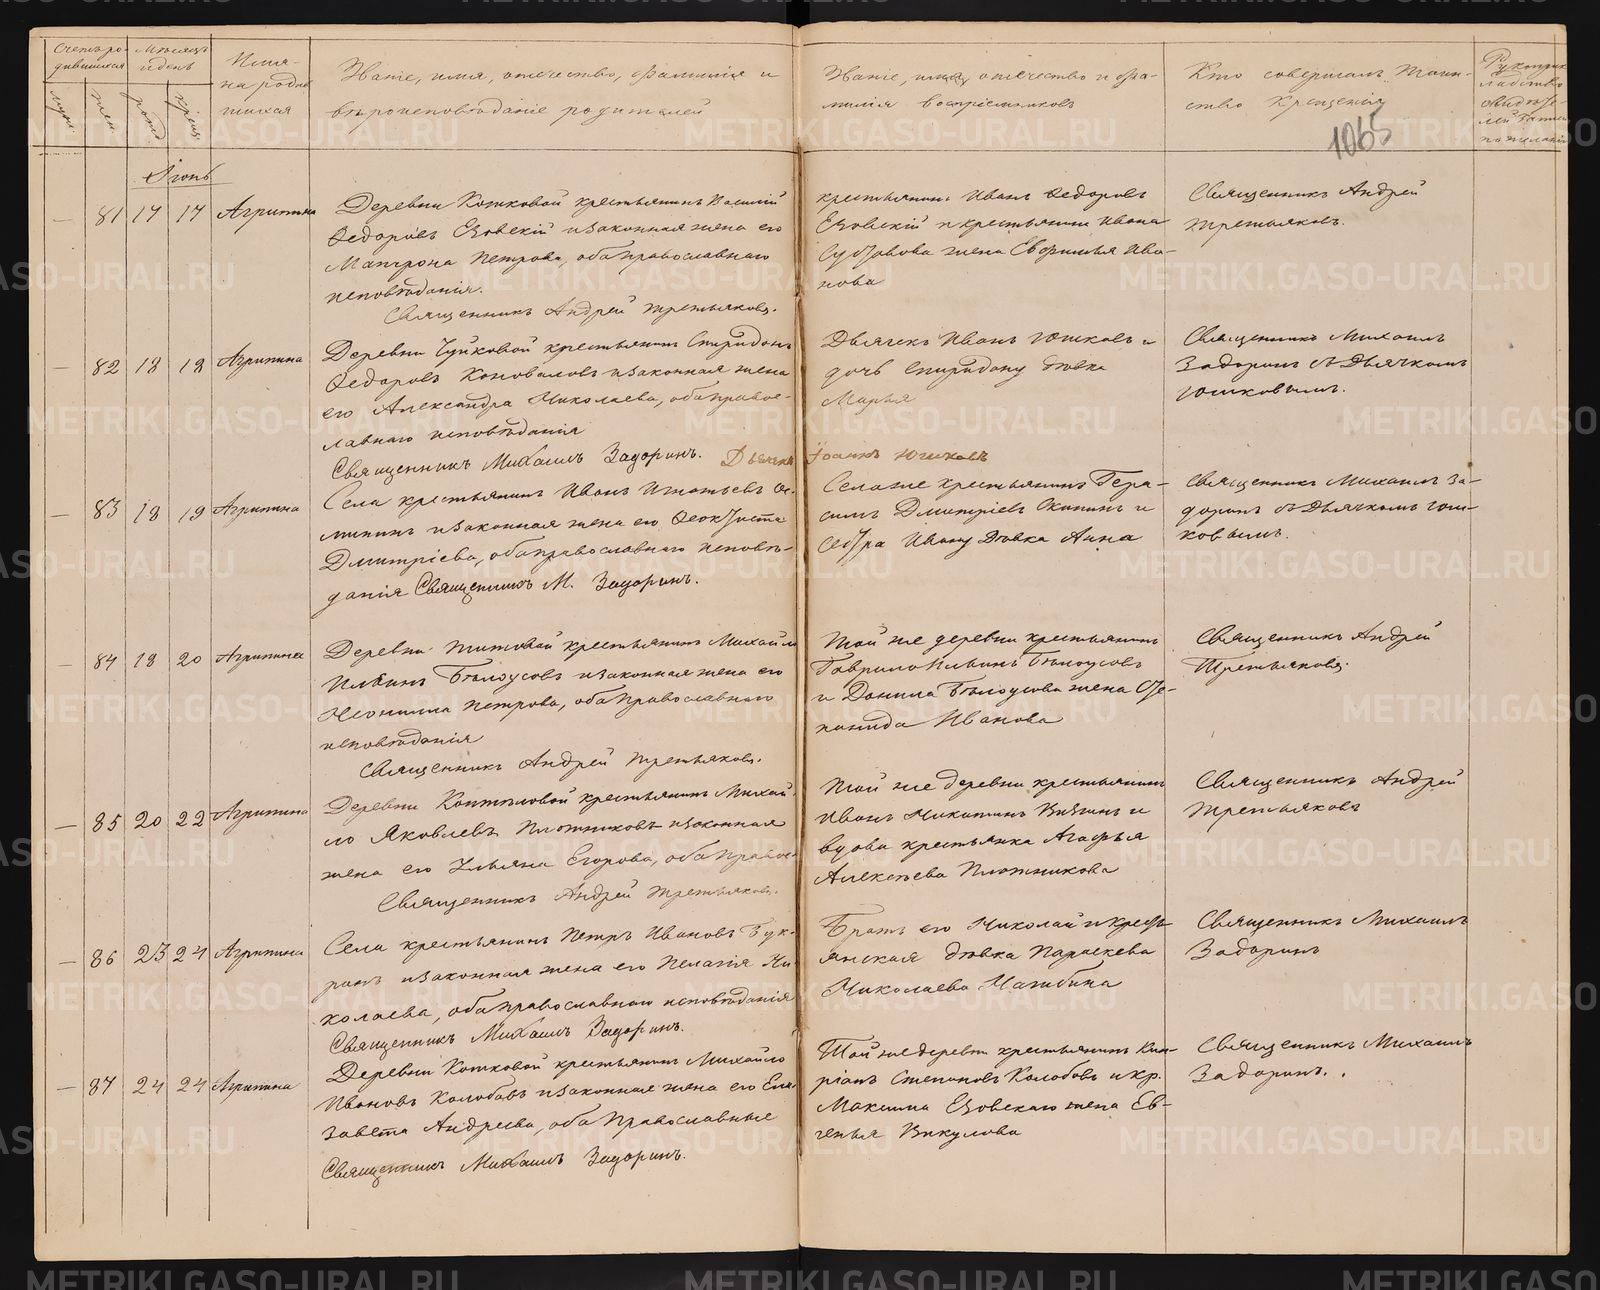 Счетъ ро-
дившихся
Мѣсяцъ
и день
муж.
жен.
рожд.
крещ.
Имя
на родив
шихся
Званіе, имя, отечество, фамилія и
вѣроисповѣданіе родителей
Званіе, имя, отечество и фа-
милія воспріемниковъ
Кто совершалъ таин-
ство крещенія
Рукоприк
ладство
свидѣте-
лей записи
по желанію
1065
Іюнь
— 81 17 17 Агрипина
Деревни Кошковой крестьянинъ
Федоровъ Езовскій и законная жена его
Матрона Петрова, оба православнаго
исповѣданія.
Священникъ Андрей Третьяковъ.
крестьянинъ Иванъ Федоровъ
Езовскій и крестьянина Ивана
жена Евфимья Ива-
нова
Священникъ Андрей
Третьяковъ.
— 82 18 19 Агрипина
Деревни Чупковой крестьянинъ Спиридонъ
Федоровъ Коноваловъ и законная жена
его Александра Николаева, оба правос-
лавнаго исповѣданія
Священникъ Михаилъ Задоринъ. Дьячекъ Іоаннъ Юшковъ
Дьячекъ Иванъ Юшковъ и
дочь Спиридону дѣвка
Марья
Священникъ Михаилъ
Задоринъ съ Дьячкомъ
Юшковымъ.
— 83 18 19 Агрипина
Села крестьянинъ Иванъ Игнатьевъ
и законная жена его Феоктиста
Дмитріева, оба православнаго исповѣ-
данія Священникъ М. Задоринъ.
Села же крестьянинъ Гера-
симъ Дмитріевъ и
сестра Ивану дѣвка Анна
Священникъ Михаилъ За-
доринъ съ Дьячкомъ Юш-
ковымъ.
— 84 19 20 Агрипина
Деревни Титовой крестьянинъ Михайло
Ильинъ Бѣлоусовъ и законная жена его
Неонила Петрова, оба православнаго
исповѣданія
Священникъ Андрей Третьяковъ.
Той же деревни крестьянинъ
Гаврило Ильинъ Бѣлоусовъ
и Данила Бѣлоусова жена Сте-
панида Иванова
Священникъ Андрей
Третьяковъ.
— 85 20 22 Агрипина
Деревни Коптѣловой крестьянинъ Михай
ло Яковлевъ Плотниковъ и законная
жена его Ульяна Егорова, оба правос-
Священникъ Андрей Третьяковъ.
Той же деревни крестьянинъ
Иванъ Никитинъ и
вдова крестьянка Агафья
Алексѣева Плотникова
Священникъ Андрей
Третьяковъ
— 86 23 24 Агрипина
Села крестьянинъ Петръ Ивановъ
и законная жена его Пелагія Ни-
колаева, оба православнаго исповѣданія
Священникъ Михаилъ Задоринъ.
Братъ его Николай и кресть-
янская дѣвка Параскева
Николаева
Священникъ Михаилъ
Задоринъ
— 87 24 24 Агрипина
Деревни Кошковой крестьянинъ Михайло
Ивановъ Колобовъ и законная жена его Ели-
завета Андреева, оба православные
Священникъ Михаилъ Задоринъ.
Той же деревни крестьянинъ Кип-
ріанъ Степановъ Колобовъ и кр.
Максима Езовскаго жена Ев-
генья Викулова
Священникъ Михаилъ
Задоринъ.
METRIKI.GASO-URAL.RU